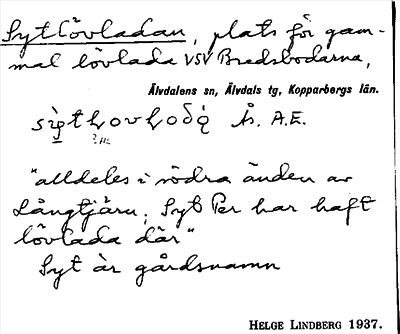 Sytlövladan, plats för gam-
mal lövlada VSV Bredsbodarna,
Älvdalens sn, Älvdals tg, Kopparbergs län.
Å. A.E.
"alldeles i södra änden av
Långtjärn, Syt Per har haft
lövlada där"
Syt är gårdsnamn
HELGE LINDBERG 1937.